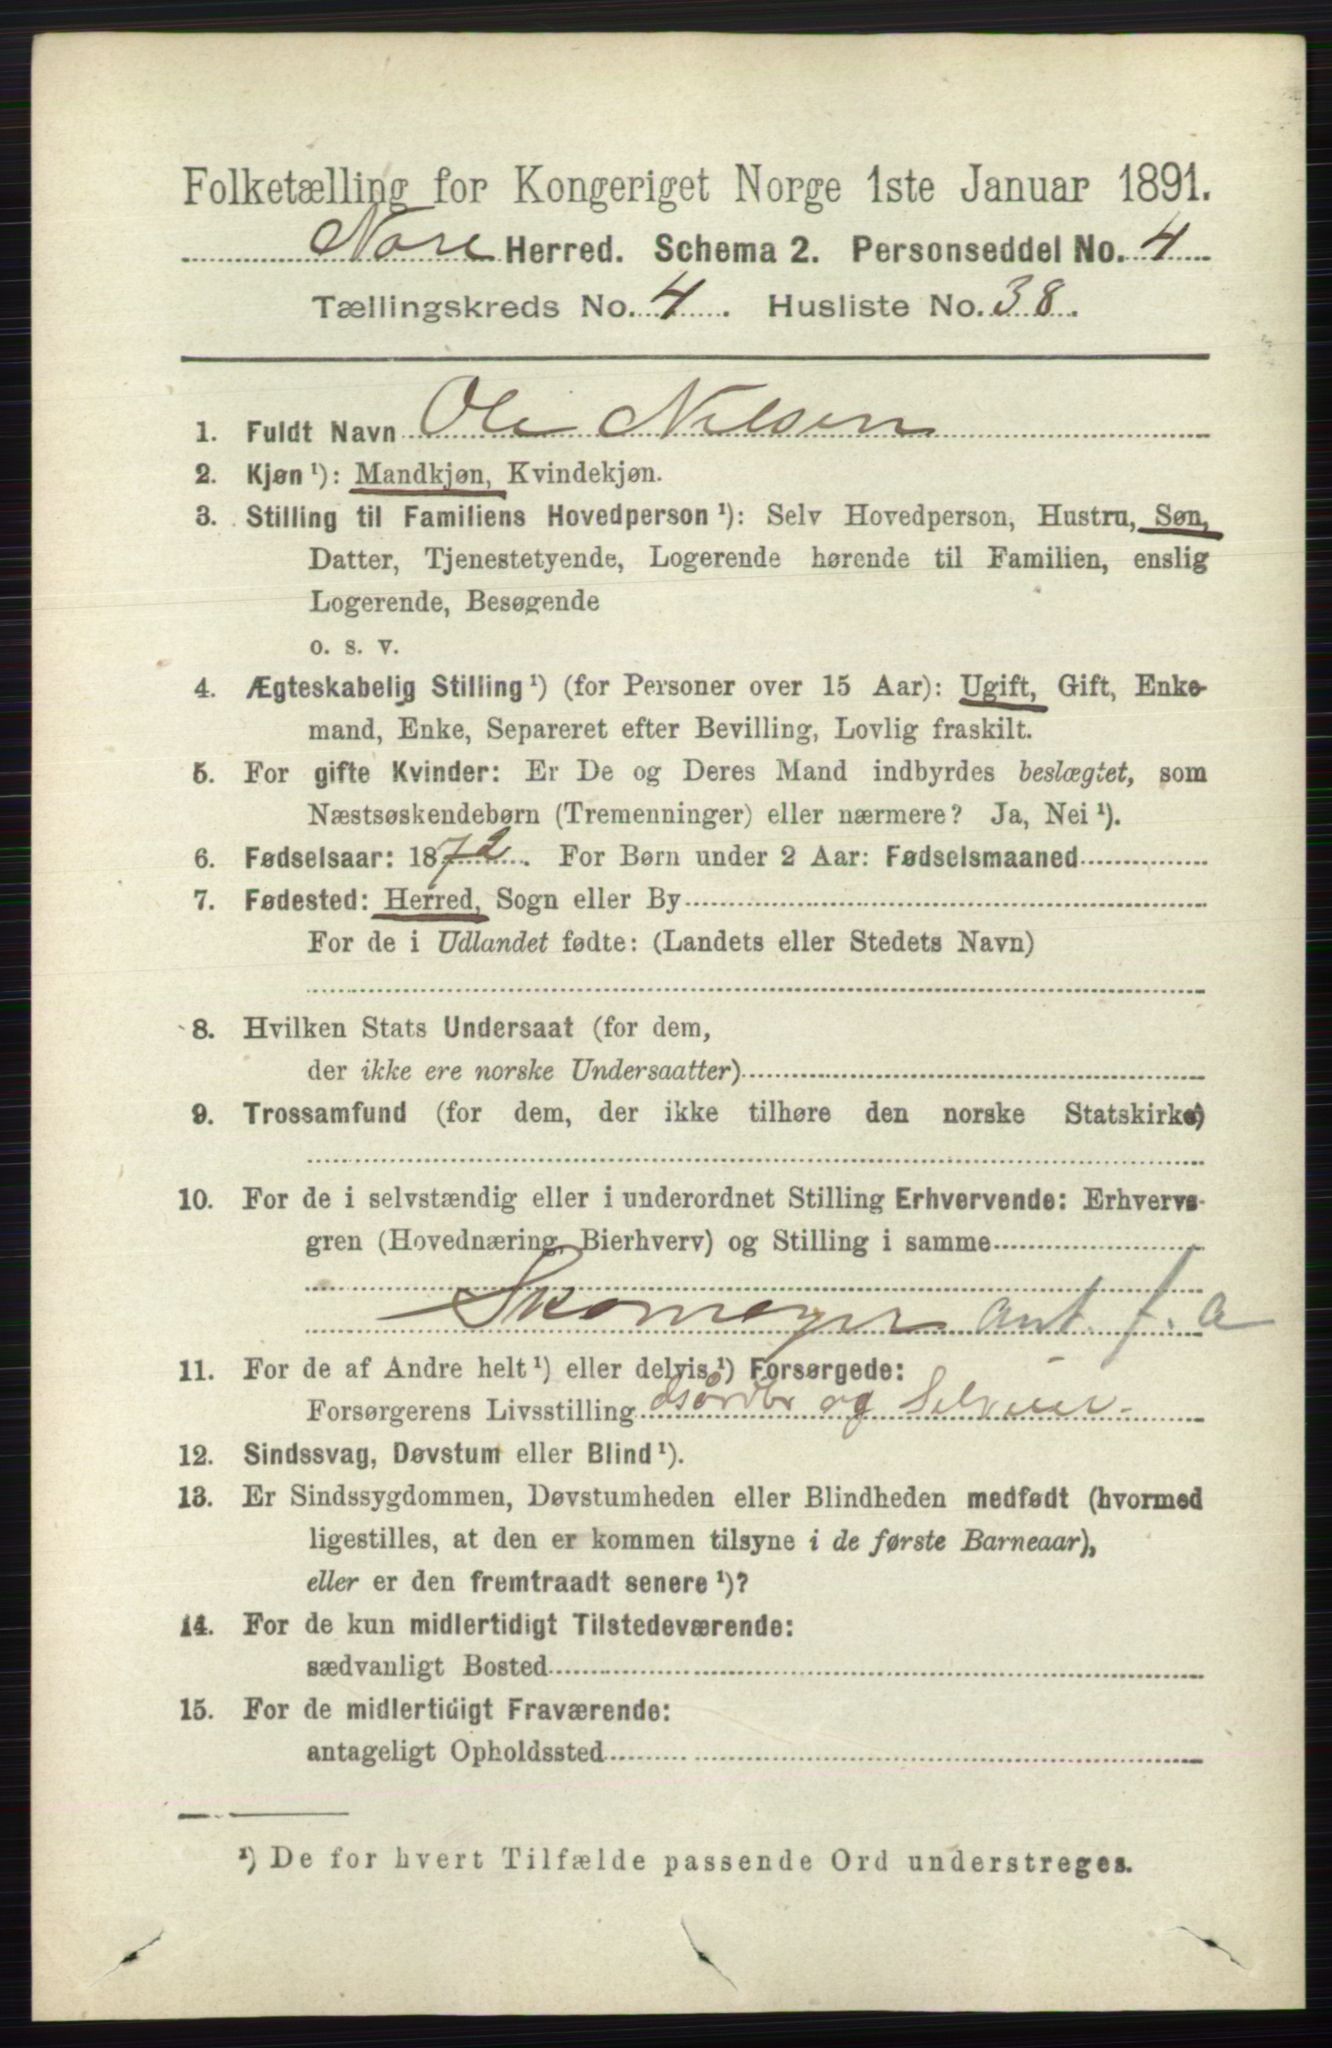 Folketælling for Kongeriget Norge 1ste Januar 1891.
Nore Herred. Schema 2. Personseddel No. 4
Tællingskreds No. 4. Husliste No. 38.
1. Fuldt Navn Ole Nilsen
2. Kjøn ¹): Mandkjøn, Kvindekjøn.
3. Stilling til Familiens Hovedperson ¹): Selv Hovedperson, Hustru, Søn,
Datter, Tjenestetyende, Logerende hørende til Familien, enslig
Logerende, Besøgende
o. s. v.
4. Ægteskabelig Stilling ¹) (for Personer over 15 Aar): Ugift, Gift, Enke-
mand, Enke, Separeret efter Bevilling, Lovlig fraskilt.
5. For gifte Kvinder: Er De og Deres Mand indbyrdes beslægtet, som
Næstsøskendebørn (Tremenninger) eller nærmere? Ja, Nei ¹).
6. Fødselsaar: 1872. For Børn under 2 Aar: Fødselsmaaned
7. Fødested: Herred, Sogn eller By
For de i Udlandet fødte: (Landets eller Stedets Navn)
8. Hvilken Stats Undersaat (for dem,
der ikke ere norske Undersaatter)
9. Trossamfund (for dem, der ikke tilhøre den norske Statskirke)
10. For de i selvstændig eller i underordnet Stilling Erhvervende: Erhvervs-
gren (Hovednæring, Bierhverv) og Stilling i samme
Skomager ant. f. a
11. For de af Andre helt ¹) eller delvis ¹) Forsørgede:
Forsørgerens Livsstilling og Selveier
12. Sindssvag, Døvstum eller Blind ¹).
13. Er Sindssygdommen, Døvstumheden eller Blindheden medfødt (hvormed
ligestilles, at den er kommen tilsyne i de første Barneaar),
eller er den fremtraadt senere ¹)?
14. For de kun midlertidigt Tilstedeværende:
sædvanligt Bosted
15. For de midlertidigt Fraværende:
antageligt Opholdssted
¹) De for hvert Tilfælde passende Ord understreges.